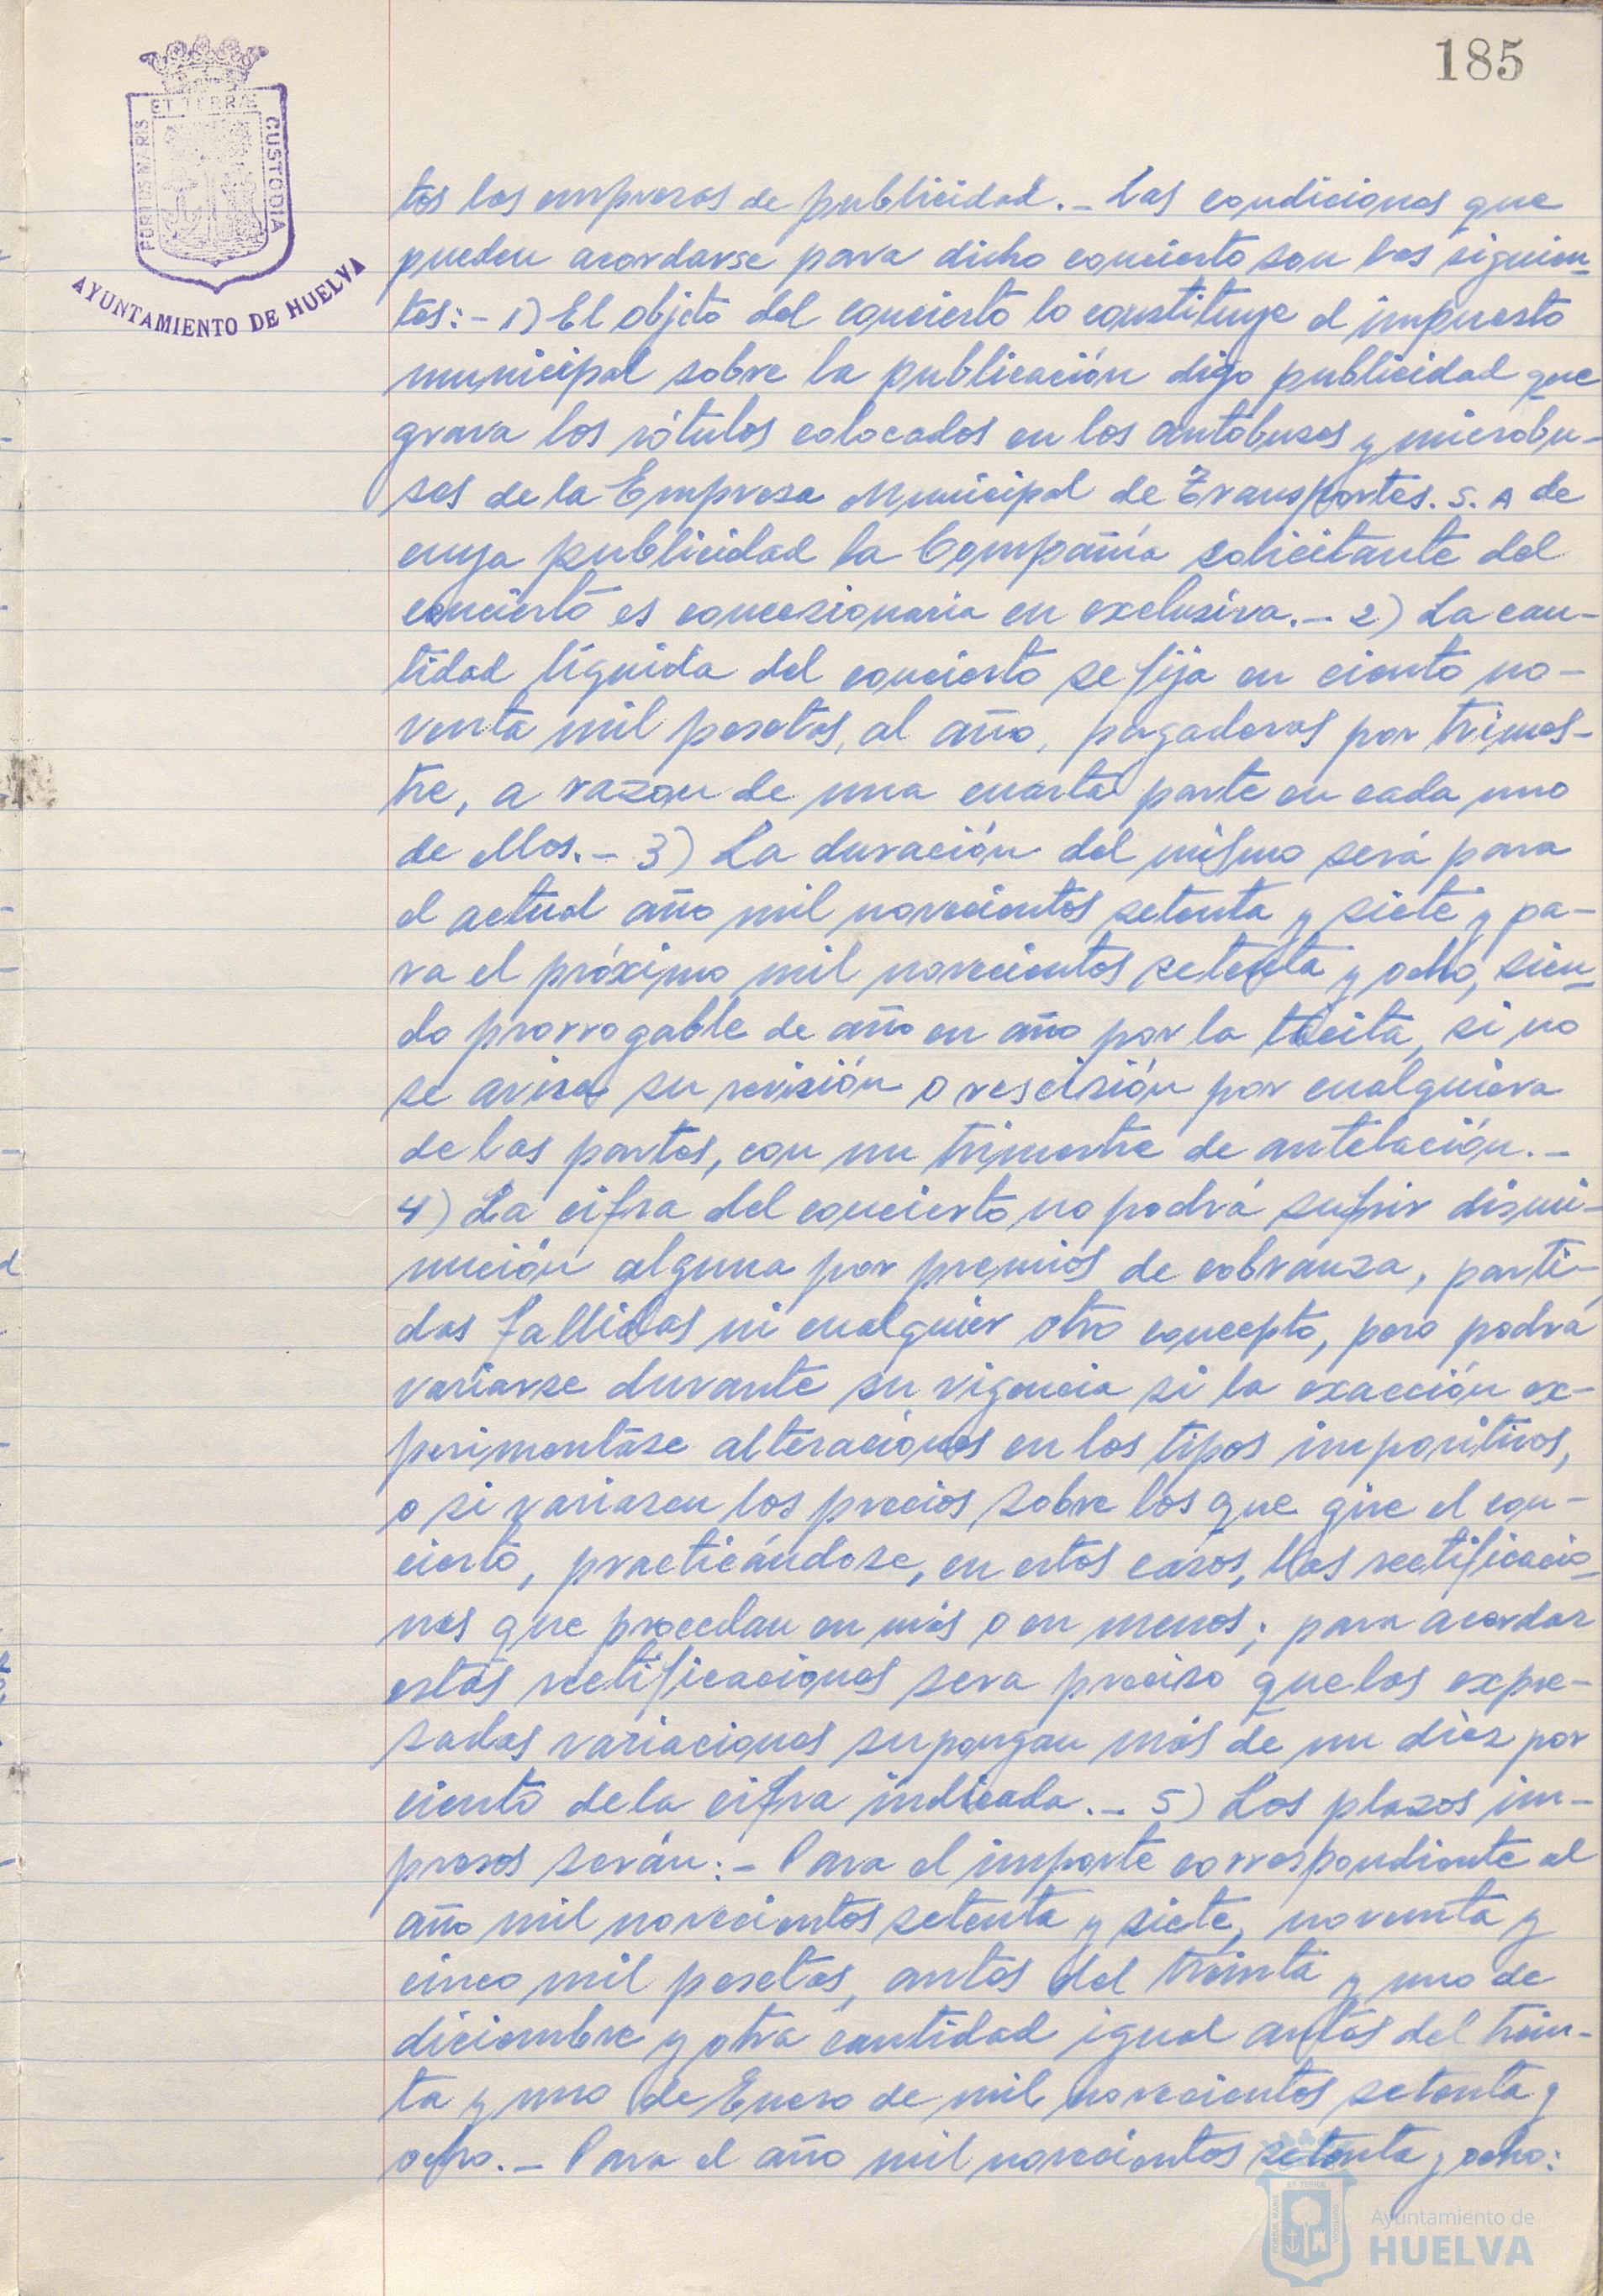 185
PORTUS MARIS
ET TERRÆ
CUSTODIA
AYUNTAMIENTO DE HUELVA
tos las empresas de publicidad.- Las condiciones que
pueden acordarse para dicho concierto son las siguien-
tes:- 1) El objeto del concierto lo constituye el impuesto
municipal sobre la publicación digo publicidad que
grava los rótulos colocados en los autobuses y microbu-
ses de la Empresa Municipal de Transportes. S. A de
cuya publicidad la Compañía solicitante del
concierto es concesionaria en exclusiva.- 2) La can-
tidad líquida del concierto se fija en ciento no-
venta mil pesetas, al año, pagaderas por trimes-
tre, a razon de una cuarta parte en cada uno
de ellos.- 3) La duración del mismo será para
el actual año mil novecientos setenta y siete y pa-
ra el próximo mil novecientos setenta y ocho, sien-
do prorrogable de año en año por la tácita, si no
se avisa su revisión o rescisión por cualquiera
de las partes, con un trimestre de antelación.-
4) La cifra del concierto no podrá sufrir dismi-
nución alguna por premios de cobranza, parti-
das fallidas ni cualquier otro concepto, pero podrá
variarse durante su vigencia si la exacción ex-
perimentase alteraciones en los tipos impositivos,
o si variasen los precios sobre los que gire el con-
cierto, practicándose, en estos casos, las rectificacio-
nes que procedan en más o en menos; para acordar
estas rectificaciones sera preciso que las expre-
sadas variaciones supongan más de un diez por
ciento de la cifra indicada.- 5) Los plazos im-
presos serán:- Para el importe correspondiente al
año mil novecientos setenta y siete, noventa y
cinco mil pesetas, antes del treinta y uno de
diciembre y otra cantidad igual antes del trein-
ta y uno de Enero de mil novecientos setenta y
ocho.- Para el año mil novecientos setenta y ocho:
Ayuntamiento de
HUELVA